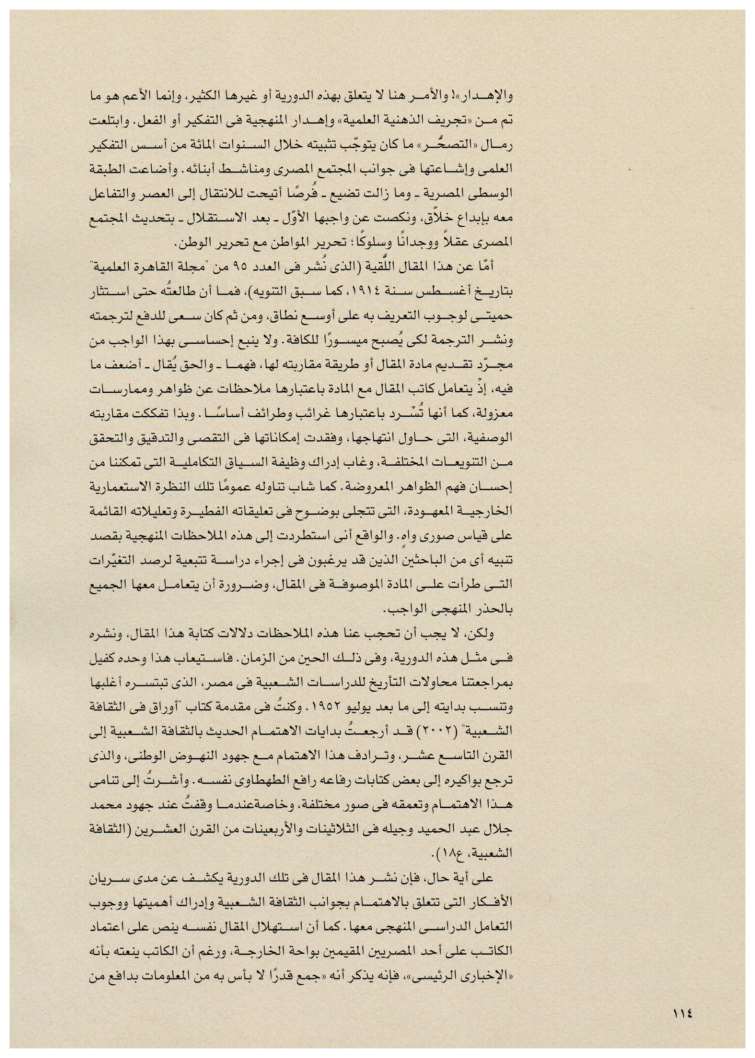 والإهدار»! والأمر هنا لا يتعلق بهذه الدورية أو غيرها الكثير، وإنما الأعم هو ما
تم من «تجريف الذهنية العلمية» وإهدار المنهجية فى التفكير أو الفعل. وابتلعت
رمال «التصحُّر» ما كان يتوجّب تثبيته خلال السنوات المائة من أسس التفكير
العلمى وإشاعتها فى جوانب المجتمع المصرى ومناشط أبنائه. وأضاعت الطبقة
الوسطى المصرية ـ وما زالت تضيع ـ فُرصًا أتيحت للانتقال إلى العصر والتفاعل
معه بإبداع خلاّق، ونكصت عن واجبها الأوّل ـ بعد الاستقلال ـ بتحديث المجتمع
المصرى عقلاً ووجدانًا وسلوكًا؛ تحرير المواطن مع تحرير الوطن.
أمّا عن هذا المقال اللُّقية (الذى نُشر فى العدد ٩٥ من "مجلة القاهرة العلمية"
بتاريخ أغسطس سنة ١٩١٤، كما سبق التنويه)، فما أن طالعتُه حتى استثار
حميتى لوجوب التعريف به على أوسع نطاق، ومن ثم كان سعى للدفع لترجمته
ونشر الترجمة لكى يُصبح ميسورًا للكافة. ولا ينبع إحساسى بهذا الواجب من
مجرّد تقديم مادة المقال أو طريقة مقاربته لها، فهما ـ والحق يُقال ـ أضعف ما
فيه، إذْ يتعامل كاتب المقال مع المادة باعتبارها ملاحظات عن ظواهر وممارسات
معزولة، كما أنها تُسْرد باعتبارها غرائب وطرائف أساسًا. وبذا تفككت مقاربته
الوصفية، التى حاول انتهاجها، وفقدت إمكاناتها فى التقصى والتدقيق والتحقق
من التنويعات المختلفة، وغاب إدراك وظيفة السياق التكاملية التى تمكننا من
إحسان فهم الظواهر المعروضة. كما شاب تناوله عمومًا تلك النظرة الاستعمارية
الخارجية المعهودة، التى تتجلى بوضوح فى تعليقاته الفطيرة وتعليلاته القائمة
على قياس صورى واهٍ. والواقع أنى استطردت إلى هذه الملاحظات المنهجية بقصد
تنبيه أى من الباحثين الذين قد يرغبون فى إجراء دراسة تتبعية لرصد التغيّرات
التى طرأت على المادة الموصوفة فى المقال، وضرورة أن يتعامل معها الجميع
بالحذر المنهجى الواجب.
ولكن، لا يجب أن تحجب عنا هذه الملاحظات دلالات كتابة هذا المقال، ونشره
فى مثل هذه الدورية، وفى ذلك الحين من الزمان. فاستيعاب هذا وحده كفيل
بمراجعتنا محاولات التأريخ للدراسات الشعبية فى مصر، الذى تبتسره أغلبها
وتنسب بدايته إلى ما بعد يوليو ١٩٥٢. وكنتُ فى مقدمة كتاب "أوراق فى الثقافة
الشعبية" (٢٠٠٢) قد أرجعتُ بدايات الاهتمام الحديث بالثقافة الشعبية إلى
القرن التاسع عشر، وترادف هذا الاهتمام مع جهود النهوض الوطنى، والذى
ترجع بواكيره إلى بعض كتابات رفاعه رافع الطهطاوى نفسه. وأشرتُ إلى تنامى
هذا الاهتمام وتعمقه فى صور مختلفة، وخاصةعندما وقفتُ عند جهود محمد
جلال عبد الحميد وجيله فى الثلاثينات والأربعينات من القرن العشرين (الثقافة
الشعبية، ع١٨).
على أية حال، فإن نشر هذا المقال فى تلك الدورية يكشف عن مدى سريان
الأفكار التى تتعلق بالاهتمام بجوانب الثقافة الشعبية وإدراك أهميتها ووجوب
التعامل الدراسى المنهجى معها. كما أن استهلال المقال نفسه ينص على اعتماد
الكاتب على أحد المصريين المقيمين بواحة الخارجة، ورغم أن الكاتب ينعته بأنه
«الإخبارى الرئيسى»، فإنه يذكر أنه «جمع قدرًا لا بأس به من المعلومات بدافع من
١١٤